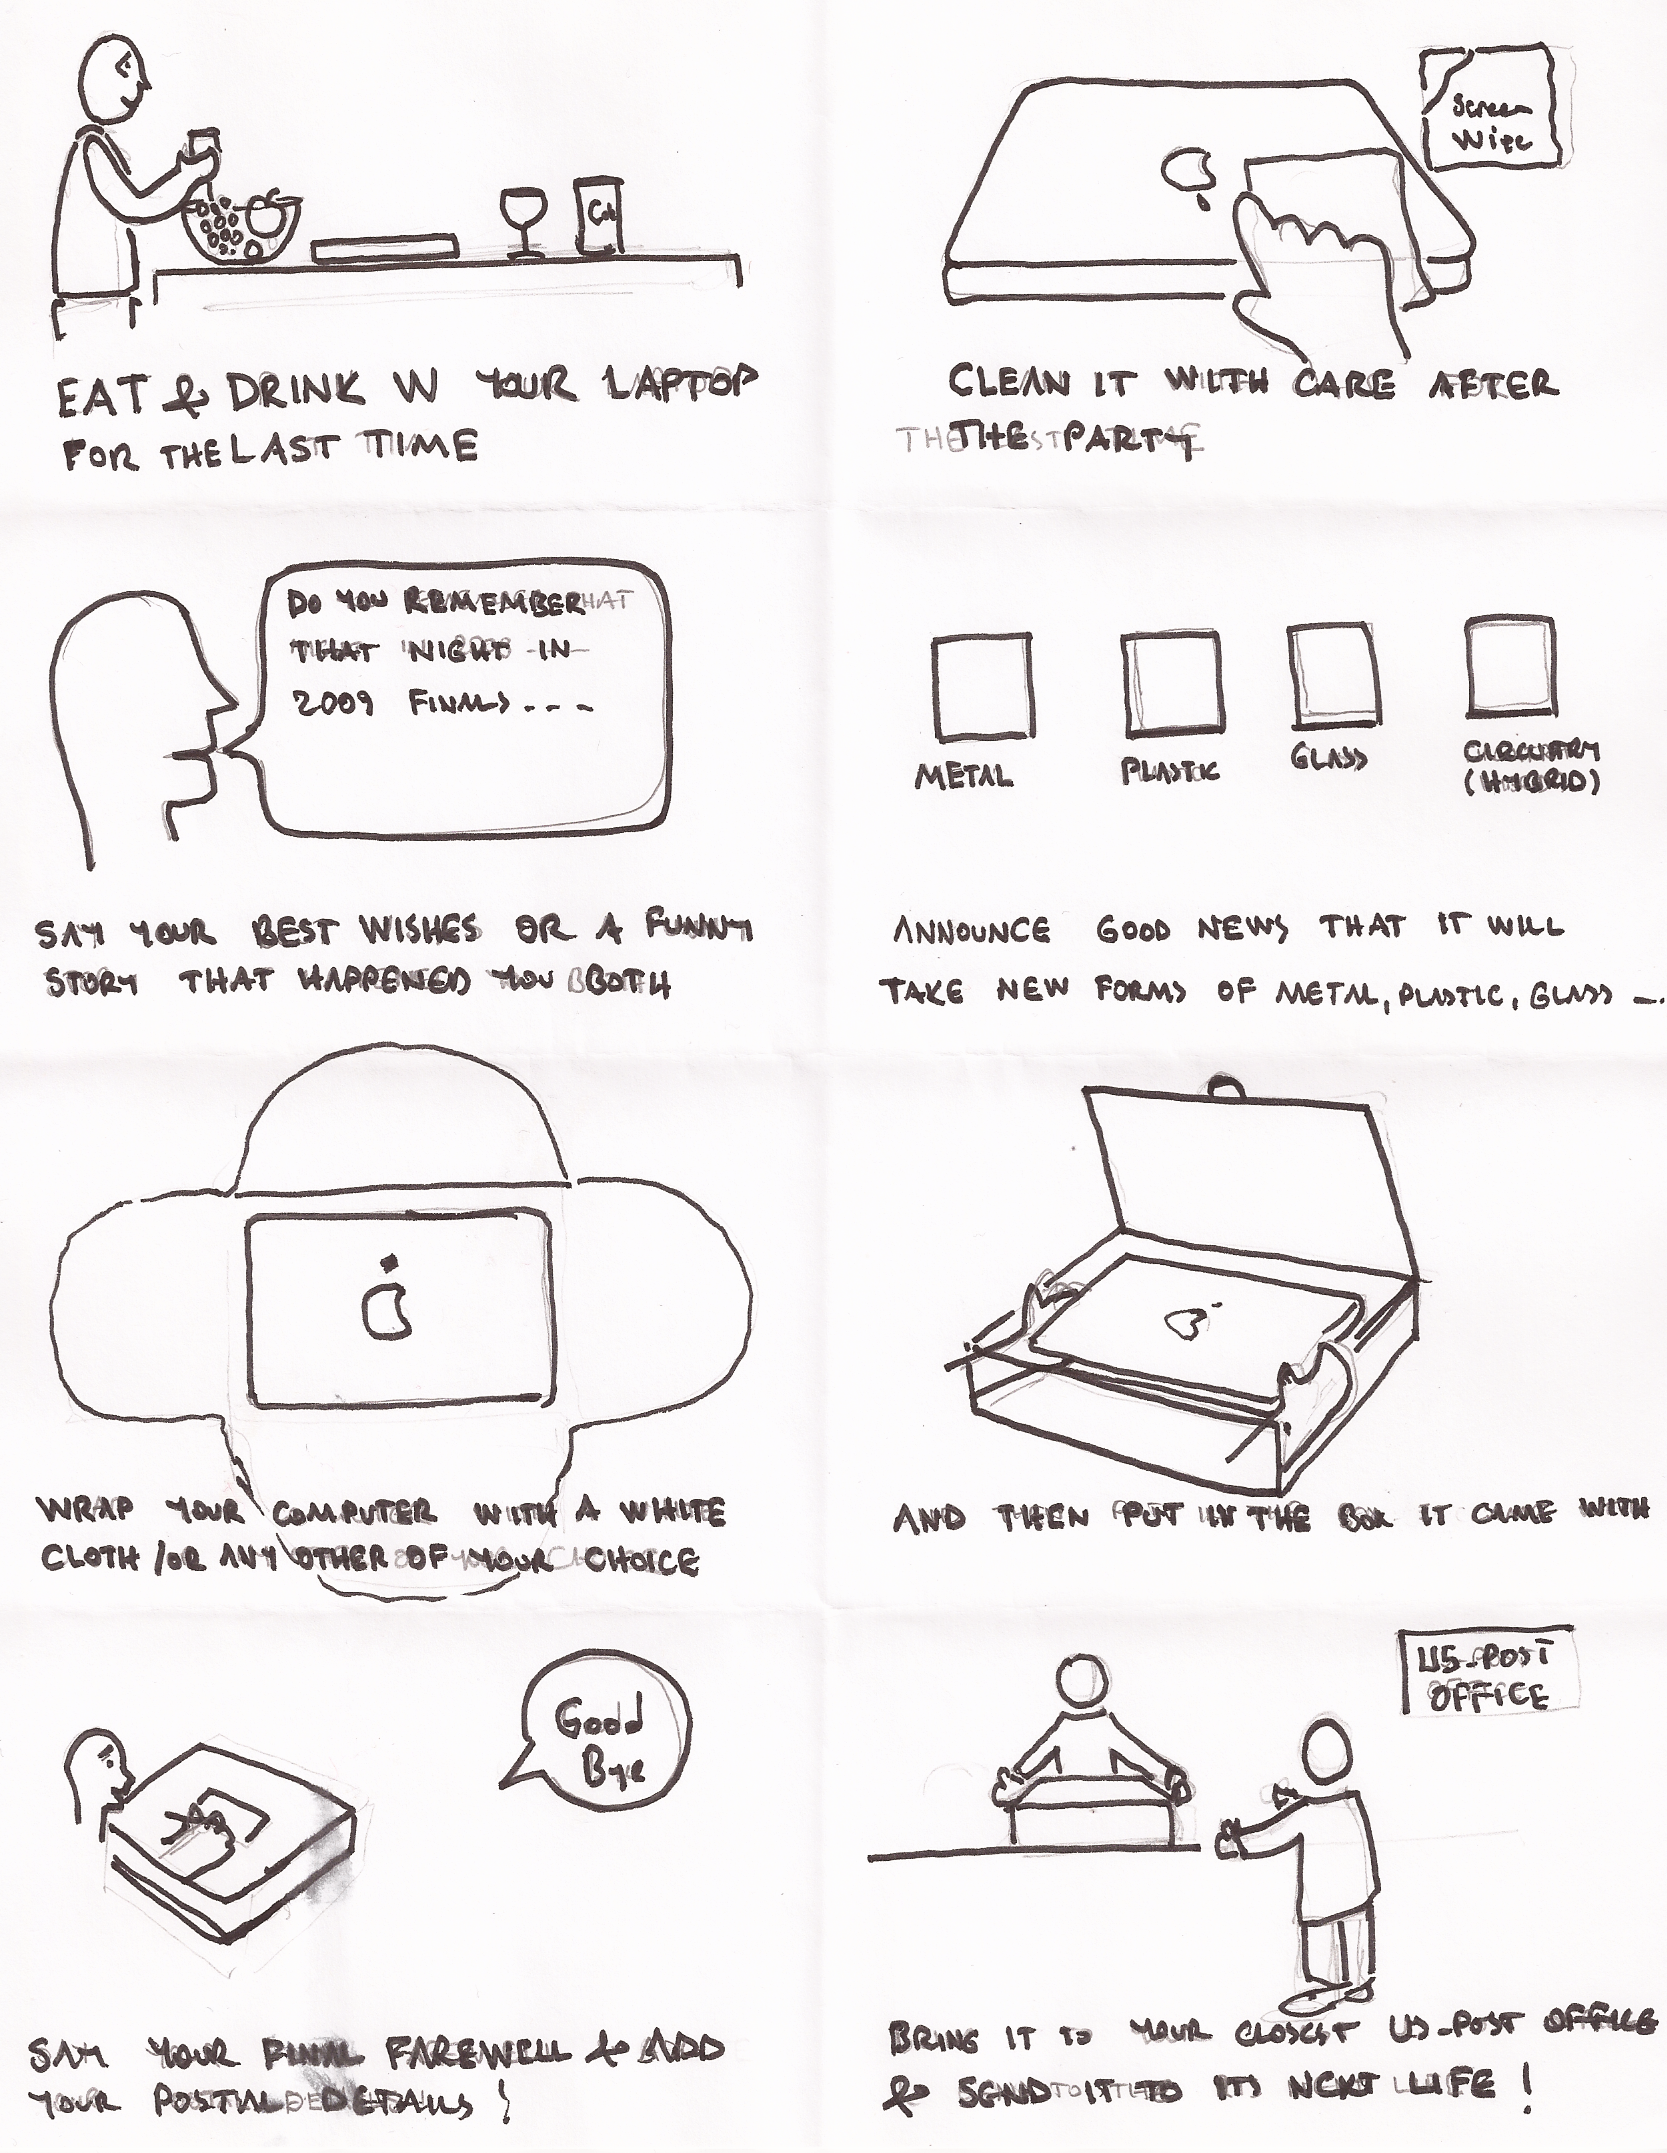 Screen
Wipe
EAT & DRINK W YOUR LAPTOP
FOR THE LAST TIME
CLEAN IT WITH CARE AFTER
THE PARTY
DO YOU REMEMBER
THAT NIGHT IN
2009 FINALS - - -
SAY YOUR BEST WISHES OR A FUNNY
STORY THAT HAPPENED YOU BOTH
METAL
PLASTIC
GLASS
CIRCUITRY
(HYBRID)
ANNOUNCE GOOD NEWS THAT IT WILL
TAKE NEW FORMS OF METAL, PLASTIC, GLASS -..
WRAP YOUR COMPUTER WITH A WHITE
CLOTH /OR ANY OTHER OF YOUR CHOICE
AND THEN PUT IN THE BOX IT CAME WITH
Good
Bye
SAY YOUR FINAL FAREWELL & ADD
YOUR POSTAL DETAILS !
US-POST
OFFICE
BRING IT TO YOUR CLOSEST US-POST OFFICE
& SEND IT TO ITS NEXT LIFE !